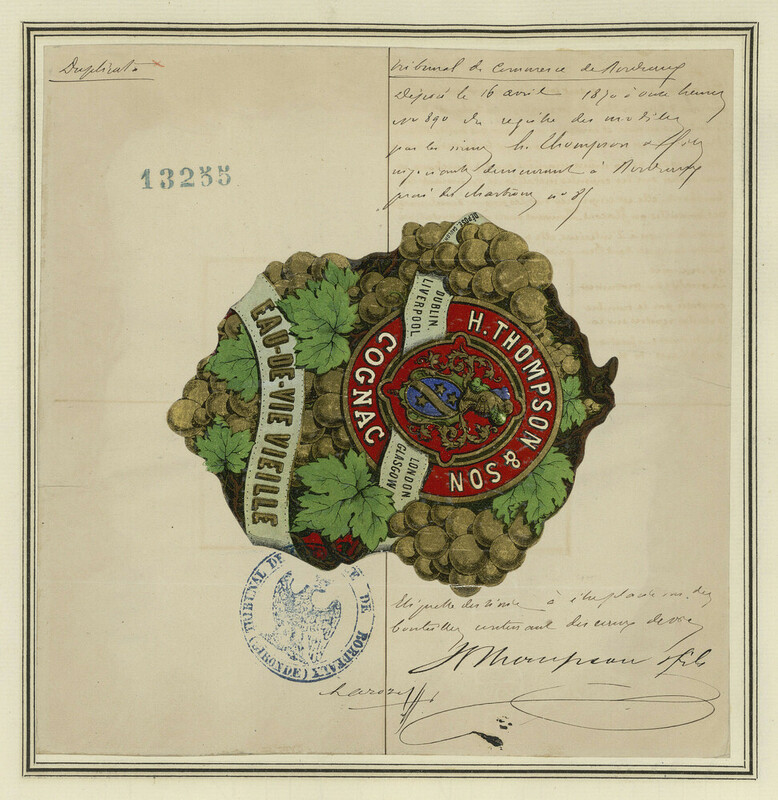 Duplicata
Tribunal de Commerce de Bordeaux
Déposé le 16 avril 1870 à onze heures
No 890 du registre des modèles
par les sieurs H. Thompson & fils
négociants demeurant à Bordeaux
quai des chartrons no 85
13255
DUBLIN.
LIVERPOOL
H. THOMPSON & SON
COGNAC
LONDON.
GLASGOW
EAU-DE-VIE VIEILLE
TRIBUNAL DE DE BORDEAUX
(GIRONDE)
Etiquette destinée à être placée sur des
bouteilles contenant des eaux de vie
H Thompson & fils